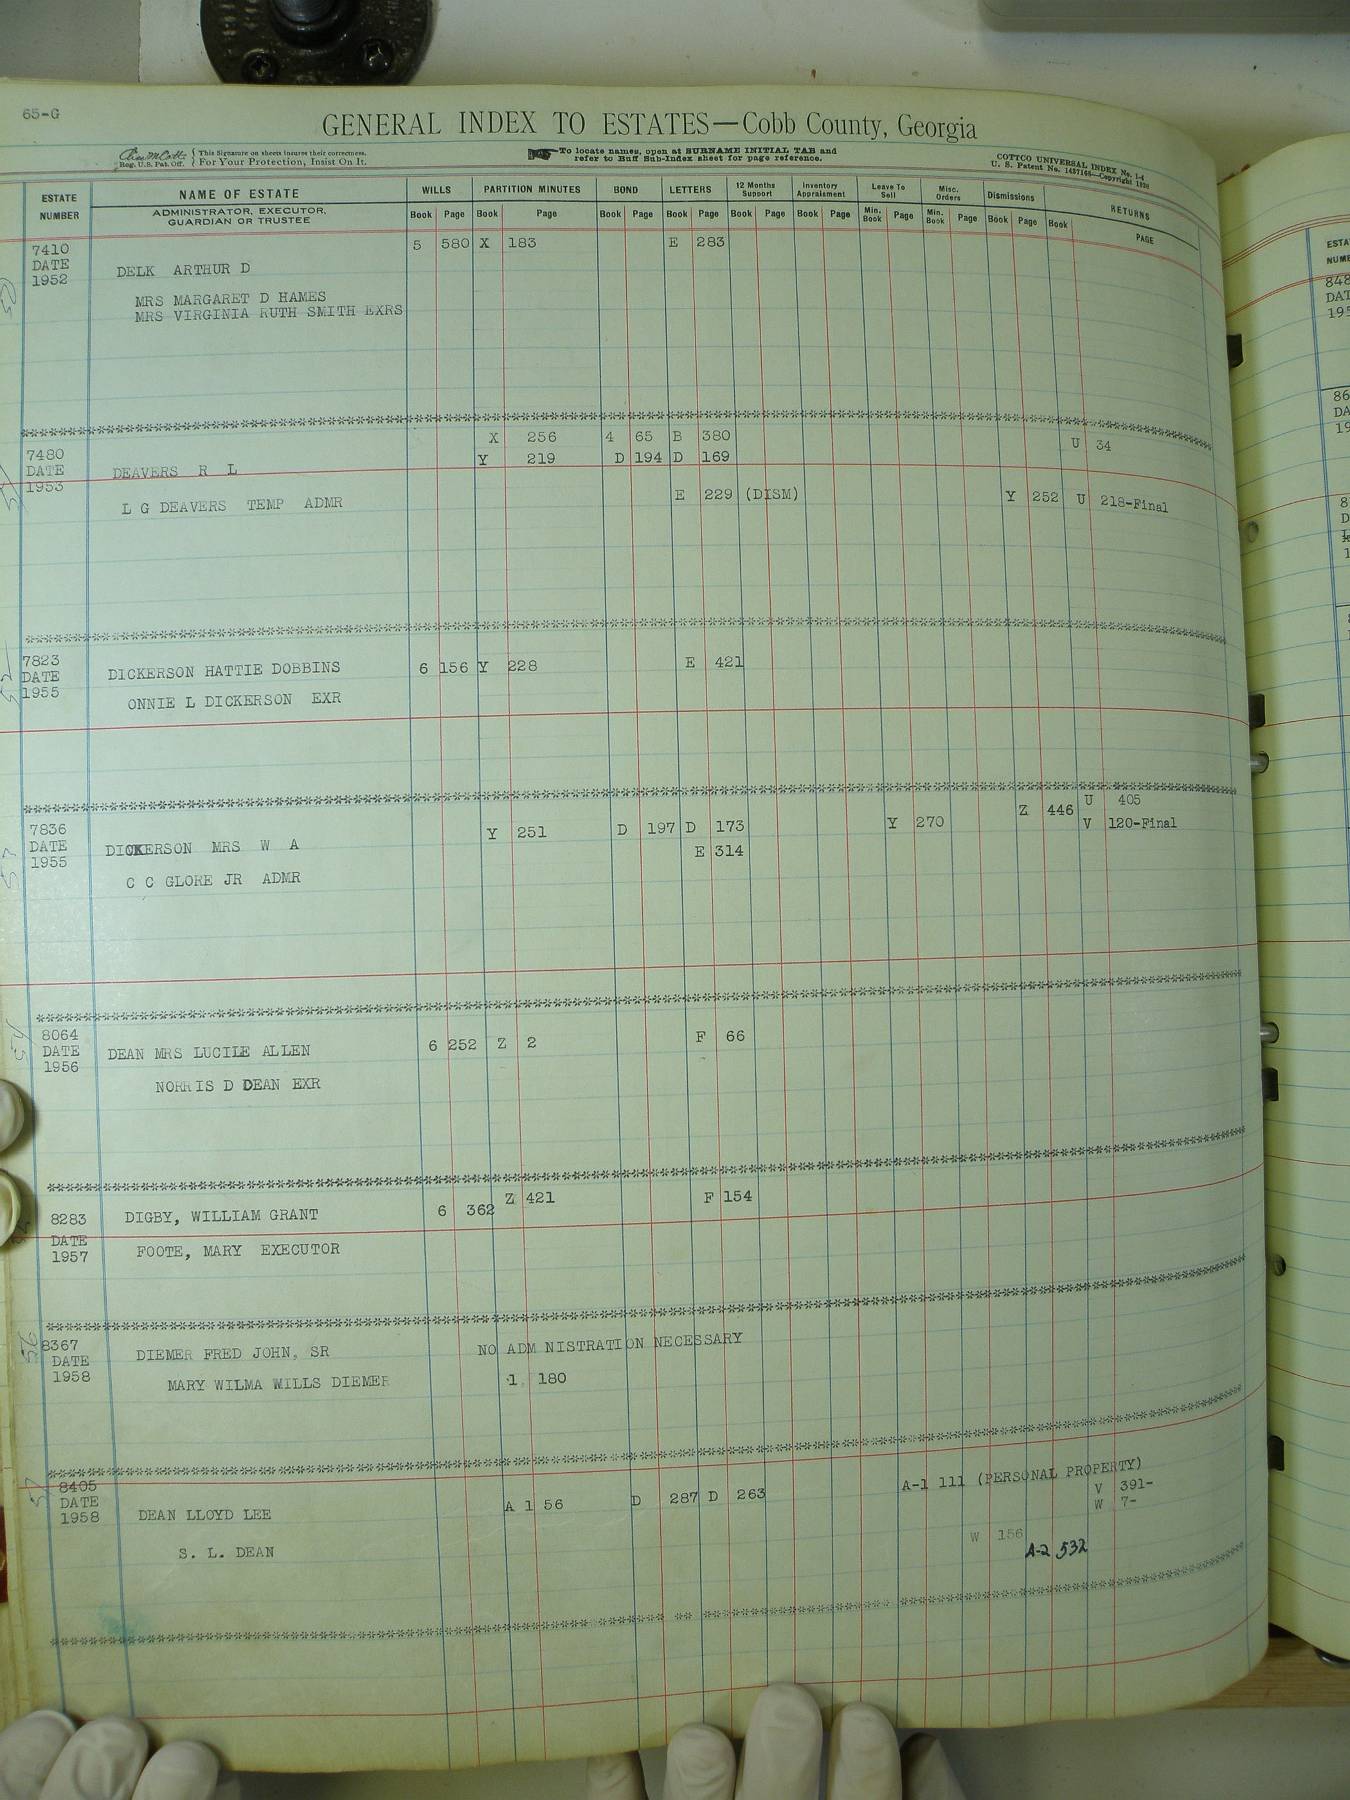 65-G
GENERAL INDEX TO ESTATES—Cobb County, Georgia
Reg. U.S. Pat. Off. { This Signature on sheets insures their correctness.
For Your Protection, Insist On It.
To locate names, open at SURNAME INITIAL TAB and
refer to Buff Sub-Index sheet for page reference.
COTTCO UNIVERSAL INDEX No. 1-4
U. S. Patent No. 1457165—Copyright 1928
ESTATE NUMBER NAME OF ESTATE WILLS PARTITION MINUTES BOND LETTERS 12 Months Support Inventory Appraisment Leave To Sell Misc. Orders Dismissions RETURNS
ADMINISTRATOR, EXECUTOR,
GUARDIAN OR TRUSTEE
Book Page Book Page Book Page Book Page Book Page Book Page Min. Book Page Min. Book Page Book Page Book PAGE
7410 5 580 X 183 E 283
DATE
1952 DELK ARTHUR D
MRS MARGARET D HAMES
MRS VIRGINIA RUTH SMITH EXRS
X 256 4 65 B 380 U 34
7480 Y 219 D 194 D 169
DATE DEAVERS R L
1953
L G DEAVERS TEMP ADMR E 229 (DISM) Y 252 U 218-Final
7823
DATE DICKERSON HATTIE DOBBINS 6 156 Y 228 E 421
1955
ONNIE L DICKERSON EXR
U 405
7836 Y 251 D 197 D 173 Y 270 Z 446 V 120-Final
DATE DICKERSON MRS W A E 314
1955
C C GLORE JR ADMR
8064
DATE DEAN MRS LUCILE ALLEN 6 252 Z 2 F 66
1956
NORRIS D DEAN EXR
Z 421 F 154
8283 DIGBY, WILLIAM GRANT 6 362
DATE
1957 FOOTE, MARY EXECUTOR
8367
DATE DIEMER FRED JOHN, SR NO ADM NISTRATION NECESSARY
1958
MARY WILMA WILLS DIEMER 1 180
8405 A-1 111 (PERSONAL PROPERTY)
DATE A 1 56 D 287 D 263 V 391-
1958 DEAN LLOYD LEE W 7-
W 156
S. L. DEAN A-2 532
ESTA
NUMB
848
DAT
195
86
DA
19